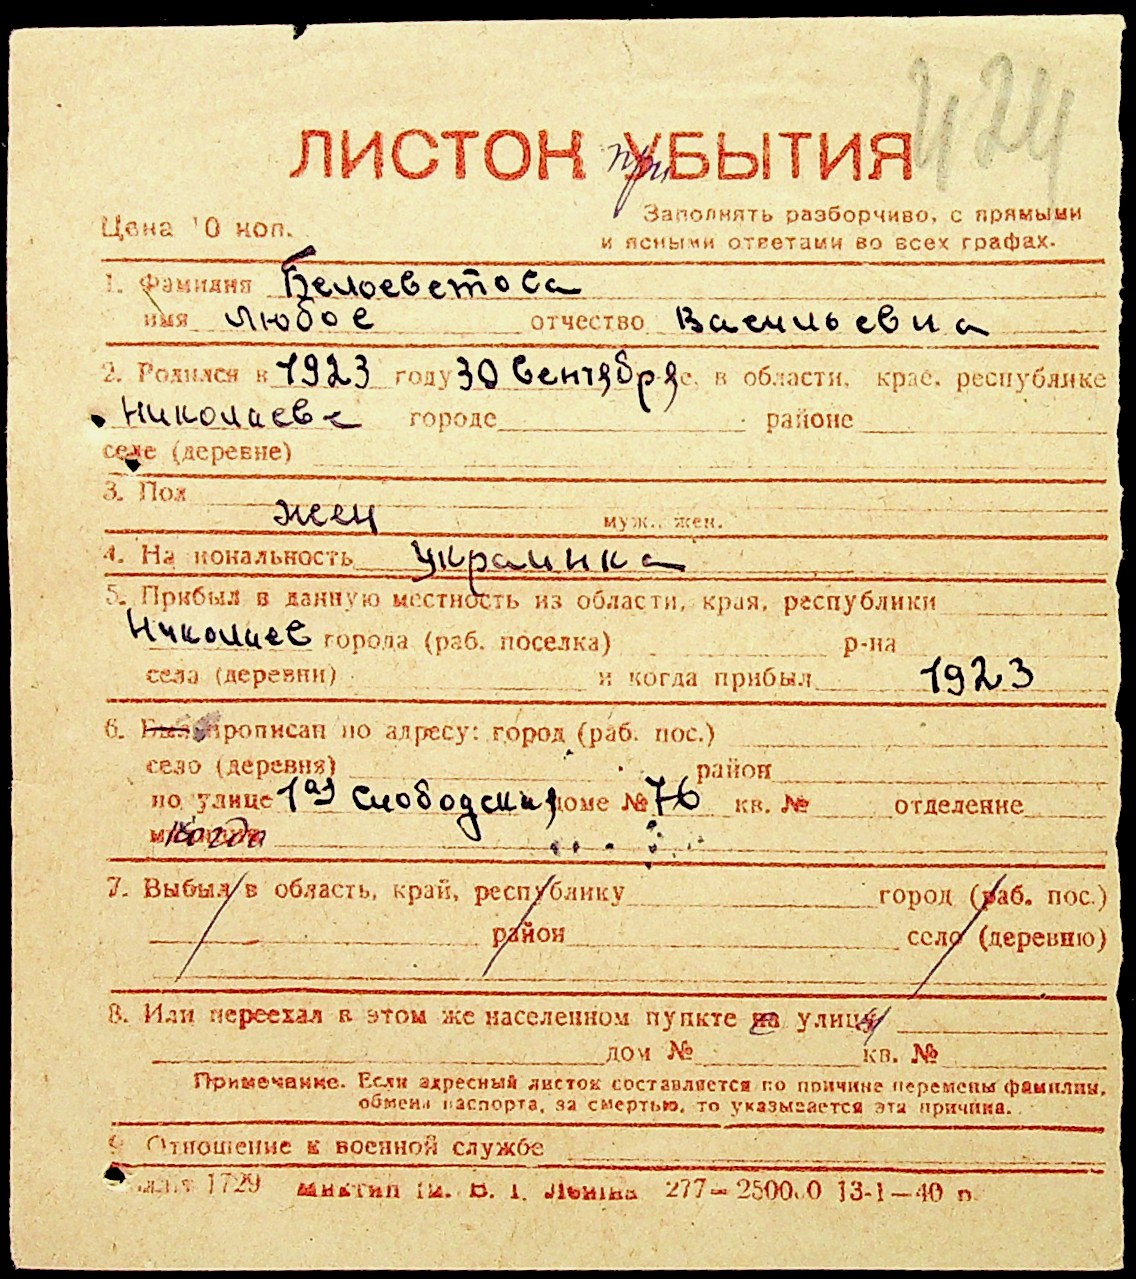 424
ЛИСТОК при УБЫТИЯ
Цена 10 коп.
Заполнять разборчиво, с прямыми
и ясными ответами во всех графах.
1. Фамилия Белосветова
имя Любов отчество Васильевна
2. Родился в 1923 году 30 Сентября с. в области, крае, республике
Николаеве городе районе
селе (деревне)
3. Пол жен муж., жен.
4. Национальность Украинка
5. Прибыл в данную местность из области, края, республики
Николаев города (раб. поселка) р-на
села (деревни) и когда прибыл 1923
6. Был прописан по адресу: город (раб. пос.)
село (деревня) район
по улице 1ая Слободская доме № 76 кв. № отделение
когда
7. Выбыл в область, край, республику город (раб. пос.)
район село (деревню)
8. Или переехал в этом же населенном пункте на улицу
дом № кв. №
Примечание. Если адресный листок составляется по причине перемены фамилии,
обмена паспорта, за смертью, то указывается эта причина.
9. Отношение к военной службе
1729 им. В. І. Леніна 277—250000 13-1—40 п.